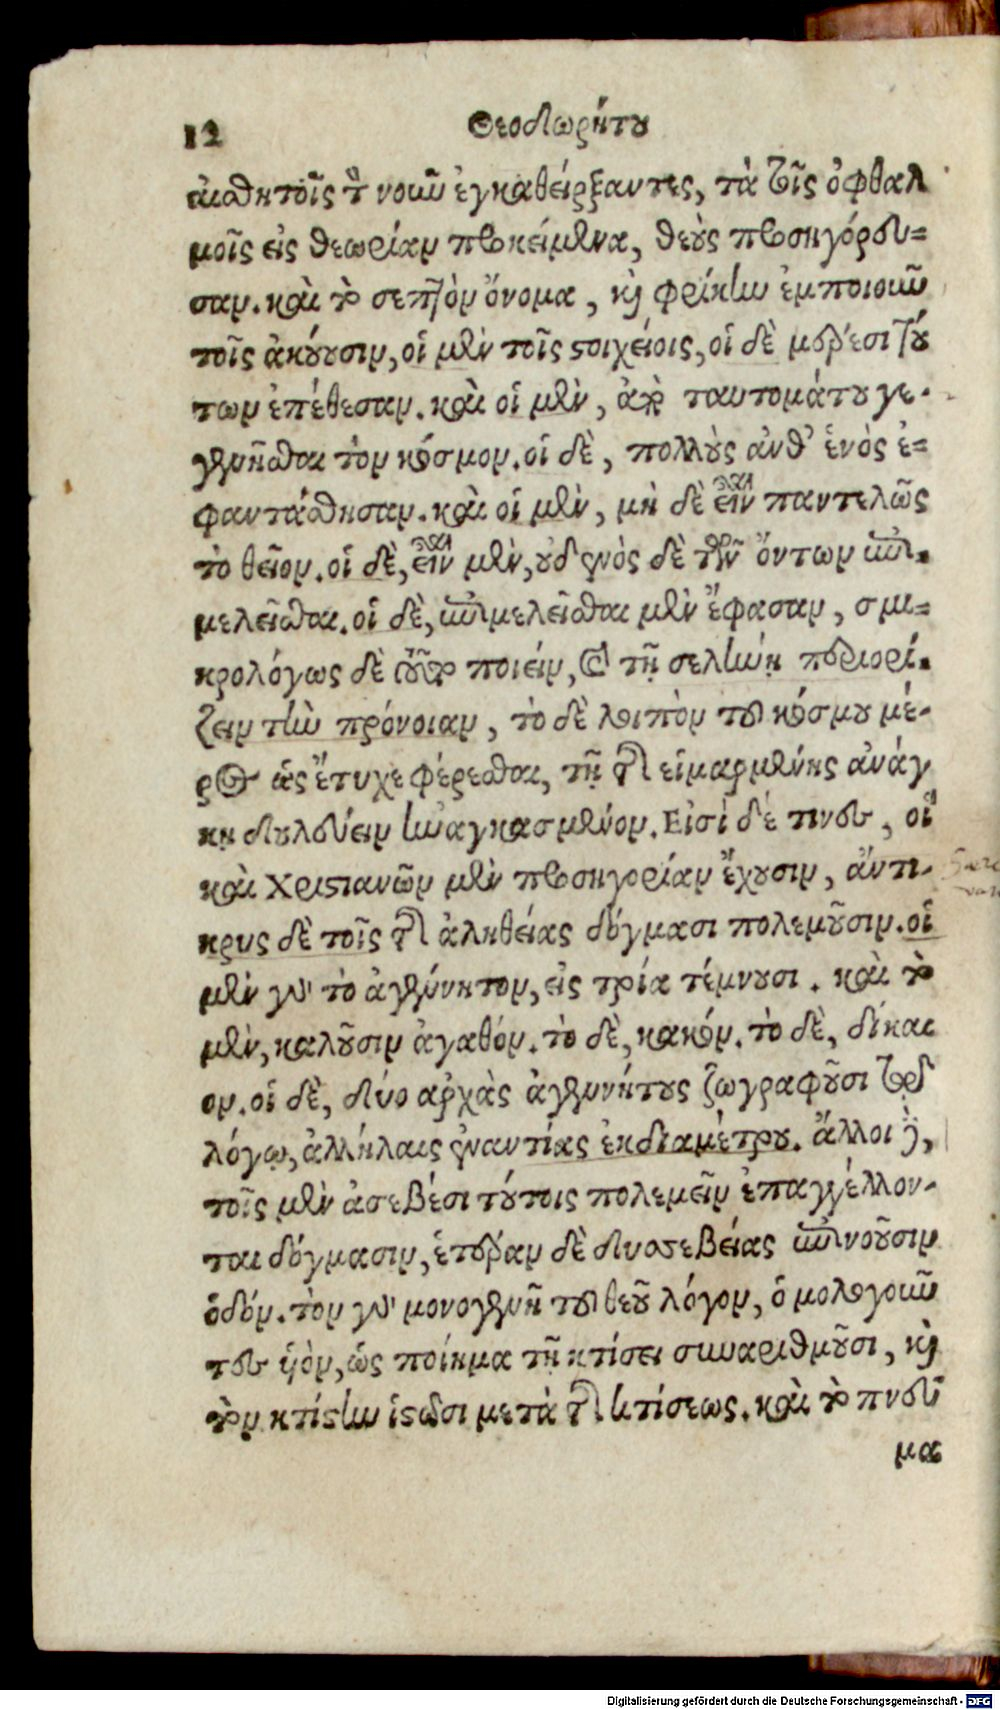 12
Θεοδωρήτου
αἰσθητοῖς τ̀ νοῦν ἐγκαθείρξαντες, τὰ τοῖς ὀφθαλ
μοῖς εἰς θεωρίαν προκείμενα, θεοὺς προσηγόρευ=
σαν. καὶ τὸ σεπτὸν ὄνομα, καὶ φρίκην ἐμποιοῦν
τοῖς ἀκούουσιν, οἱ μὲν τοῖς στοιχείοις, οἱ δὲ μέρεσι τού
των ἐπέθεσαν. καὶ οἱ μὲν, ἀπὸ ταυτομάτου γε-
γενῆσθαι τὸν κόσμον. οἱ δὲ, πολλοὺς ἀνθ’ ἑνὸς ἐ=
φαντάσθησαν. καὶ οἱ μὲν, μὴ δὲ εἶναι παντελῶς
τὸ θεῖον. οἱ δὲ, εἶναι μὲν, οὐδενὸς δὲ τῶν ὄντων ἐπι-
μελεῖσθαι. οἱ δὲ, ἐπιμελεῖσθαι μὲν ἔφασαν, σμι=
κρολόγως δὲ τοῦτο ποιεῖν, καὶ τῇ σελήνῃ περιορί-
ζειν τὴν πρόνοιαν, τὸ δὲ λοιπὸν τοῦ κόσμου μέ-
ρος ὡς ἔτυχε φέρεσθαι, τῇ τῆς εἱμαρμένης ἀνάγ
κῃ δουλεύειν ἠναγκασμένον. Εἰσὶ δέ τινες, οἳ
καὶ Χριστιανῶν μὲν προσηγορίαν ἔχουσιν, ἄντι-
κρυς δὲ τοῖς τῆς ἀληθείας δόγμασι πολεμοῦσιν. οἱ
μὲν γὰρ τὸ ἀγέννητον, εἰς τρία τέμνουσι. καὶ τὸ
μὲν, καλοῦσιν ἀγαθόν. τὸ δὲ, κακόν. τὸ δὲ, δίκαι
ον. οἱ δὲ, δύο ἀρχὰς ἀγεννήτους ζωγραφοῦσι τῷ
λόγῳ, ἀλλήλαις ἐναντίας ἐκδιαμέτρου. ἄλλοι δὲ,
τοῖς μὲν ἀσεβέσι τούτοις πολεμεῖν ἐπαγγέλλον-
ται δόγμασιν, ἑτέραν δὲ δυσσεβείας ἐπινοοῦσιν
ὁδόν. τὸν γὰρ μονογενῆ τοῦ θεοῦ λόγον, ὁμολογοῦν
τες υἱὸν, ὡς ποίημα τῇ κτίσει συναριθμοῦσι, καὶ
τὸν κτίστην ἱστῶσι μετὰ τῆς κτίσεως. καὶ τὸ πνεῦ
μα
Digitalisierung gefördert durch die Deutsche Forschungsgemeinschaft - DFG